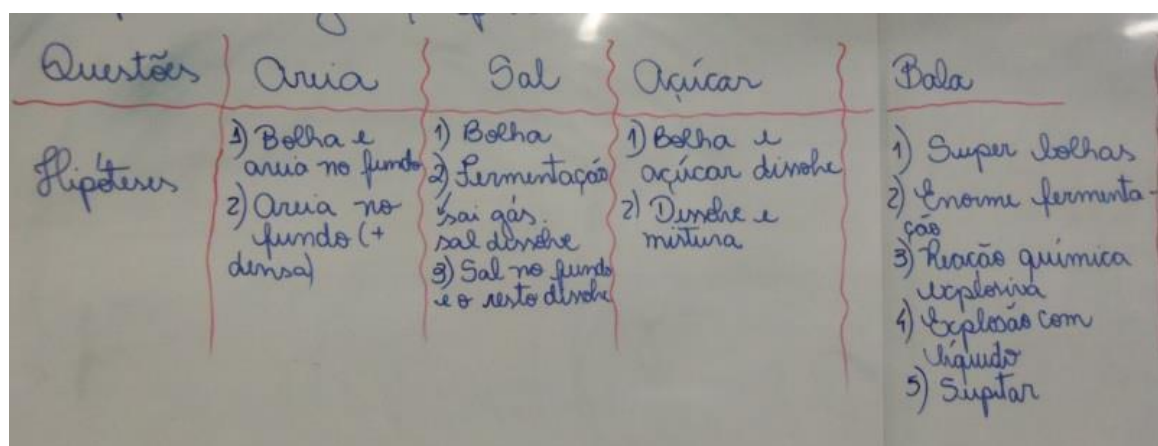 Questões Areia Sal Açúcar Bala
Hipóteses
1) Bolha e
areia no fundo
2) Areia no
fundo (+
densa)
1) Bolha
2) Fermentação
sai gás.
sal dissolve
3) Sal no fundo
e o resto dissolve
1) Bolha e
açúcar dissolve
2) Dissolve e
mistura
1) Super bolhas
2) Enorme fermenta-
ção
3) Reação química
explosiva
4) Explosão com
líquido
5) Supitar